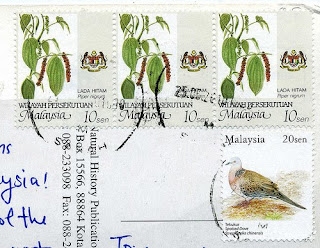 LADA HITAM
Piper nigrum
WILAYAH PERSEKUTUAN
Malaysia 10sen
LADA HITAM
Piper nigrum
WILAYAH PERSEKUTUAN
Malaysia 10sen
LADA HITAM
Piper nigrum
WILAYAH PERSEKUTUAN
Malaysia 10sen
Malaysia 20sen
Tekukur
Spotted Dove
Streptopelia chinensis
Natural History Publication
Box 15566, 88864 Kota
088-233098 Fax: 088-2
ysia!
of the